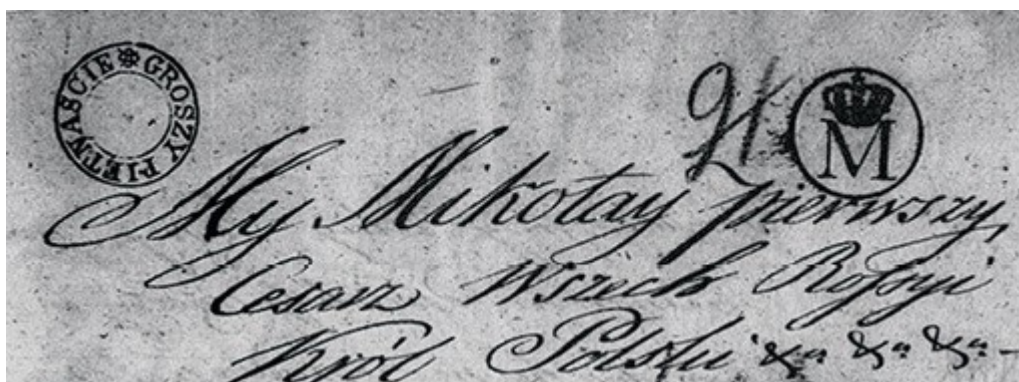 GROSZY PIĘTNAŚCIE
M
My Mikołay pierwszy
Cesarz Wszech Roſsyi
Król Polski &ca &ca &ca